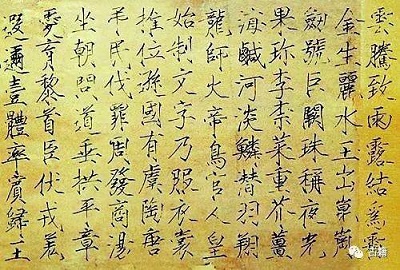 雲騰致雨露結為霜
金生麗水玉出崑崗
劍號巨闕珠稱夜光
果珍李柰菜重芥薑
海鹹河淡鱗潛羽翔
龍師火帝鳥官人皇
始制文字乃服衣裳
推位遜國有虞陶唐
弔民伐罪周發商湯
坐朝問道垂拱平章
愛育黎首臣伏戎羌
遐邇壹體率賓歸王